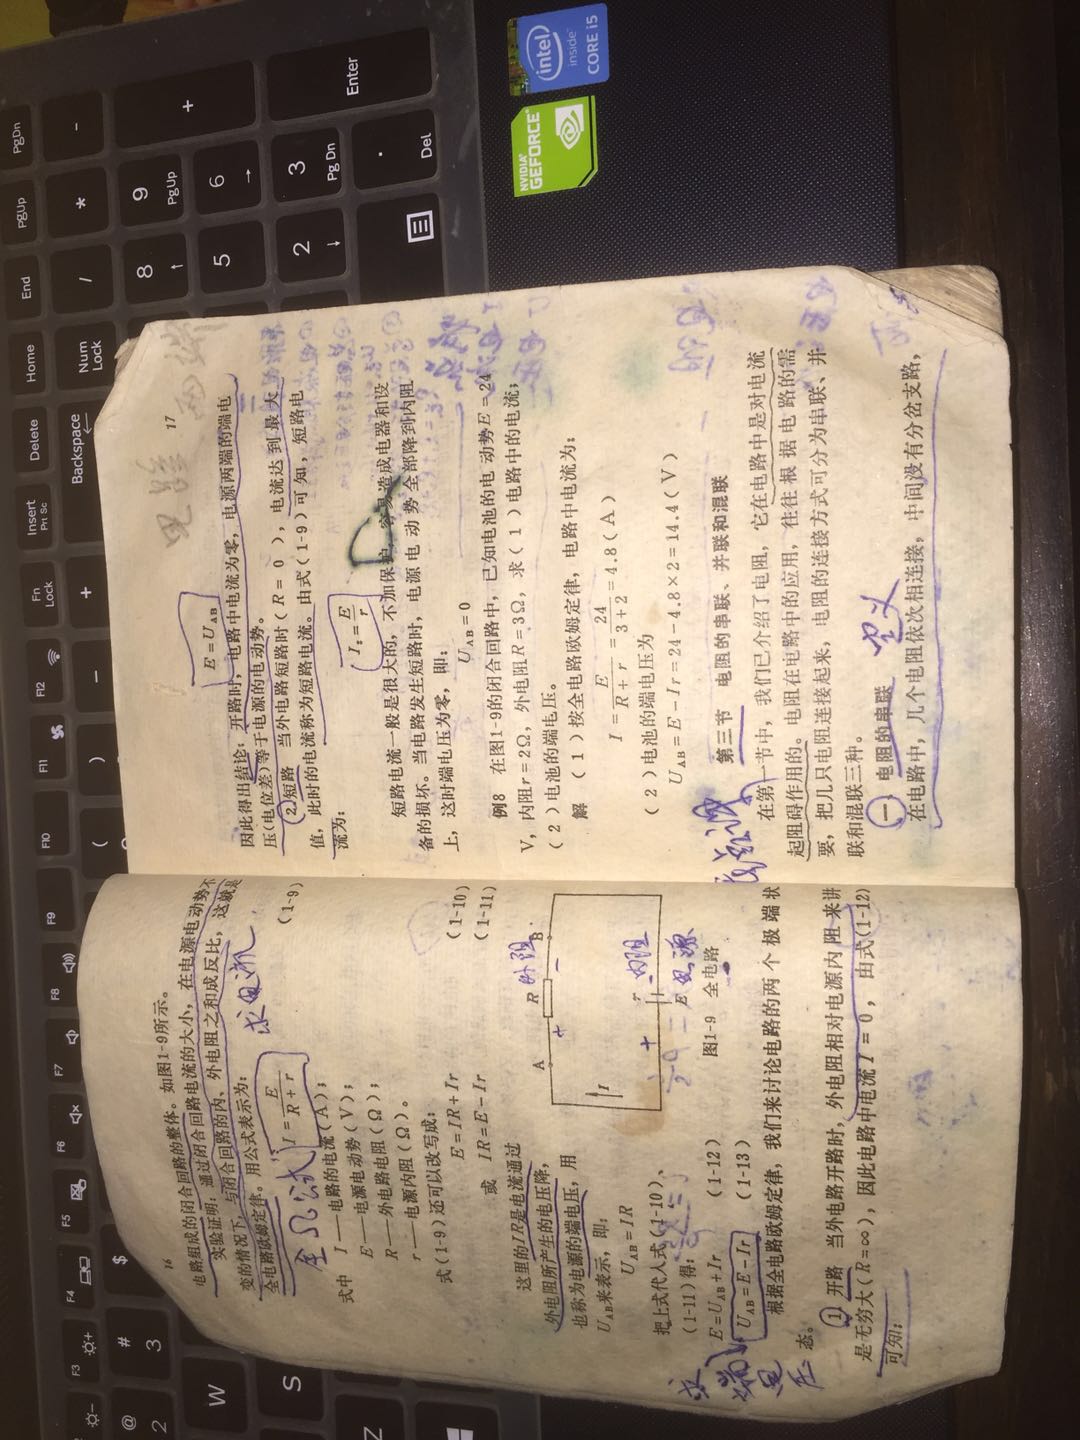 16
电路组成的闭合回路的整体。如图1-9所示。
实验证明：通过闭合回路电流的大小，在电源电动势不
变的情况下，与闭合回路的内、外电阻之和成反比，这就是
全电路欧姆定律。用公式表示为：
I = E / (R + r) (1-9)
全Ω公式
求电流
式中 I——电路的电流(A)；
E——电源电动势(V)；
R——外电路电阻(Ω)；
r——电源内阻(Ω)。
式(1-9)还可以改写成：
E=IR+Ir (1-10)
或 IR=E-Ir (1-11)
这里的IR是电流通过
外电阻所产生的电压降，
也称为电源的端电压，用
UAB来表示，即：
UAB=IR
把上式代入式(1-10)、
(1-11)得：
E=UAB+Ir (1-12)
UAB=E-Ir (1-13)
求端
电
压
A R B
外阻
+ -
I
r 内阻
+
E 电源
图1-9 全电路
根据全电路欧姆定律，我们来讨论电路的两个极端状
态。
1 开路 当外电路开路时，外电阻相对电源内阻来讲
是无穷大(R=∞)，因此电路中电流I=0，由式(1-12)
可知：
17
E=UAB
因此得出结论：开路时，电路中电流为零，电源两端的端电
压(电位差)等于电源的电动势。
2. 短路 当外电路短路时(R=0)，电流达到最大
值，此时的电流称为短路电流。由式(1-9)可知，短路电
流为：
Is = E / r
短路电流一般是很大的，不加保护，容易造成电器和设
备的损坏。当电路发生短路时，电源电动势全部降到内阻
上，这时端电压为零，即：
UAB=0
例8 在图1-9的闭合回路中，已知电池的电动势E=24
V，内阻r=2Ω，外电阻R=3Ω，求(1)电路中的电流；
(2)电池的端电压。
解 (1)按全电路欧姆定律，电路中电流为：
I = E / (R + r) = 24 / (3 + 2) = 4.8(A)
(2)电池的端电压为
UAB=E-Ir=24-4.8×2=14.4(V)
第三节 电阻的串联、并联和混联
在第一节中，我们已介绍了电阻，它在电路中是对电流
起阻碍作用的。电阻在电路中的应用，往往根据电路的需
要，把几只电阻连接起来，电阻的连接方式可分为串联、并
联和混联三种。
一、电阻的串联
定义
在电路中，几个电阻依次相连接，中间没有分岔支路，
PgDn
PgUp
End
Home
Delete
Insert
Prt Sc
Fn
Lock
F12
F11
F10
F9
F8
F7
F6
F5
F4
F3
-
*
/
Num
Lock
Backspace
+
9
PgUp
8
6
5
Enter
3
PgDn
2
.
Del
)
(
$
#
3
@
2
W
S
Z
intel
inside
CORE i5
NVIDIA
GEFORCE